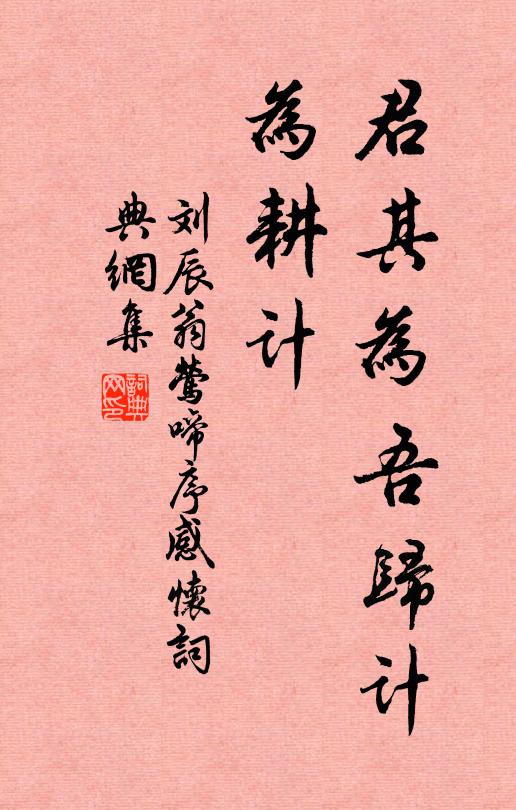 君其為吾歸計
為耕计
刘辰翁莺啼序感懷詞
典網集
詞典網印